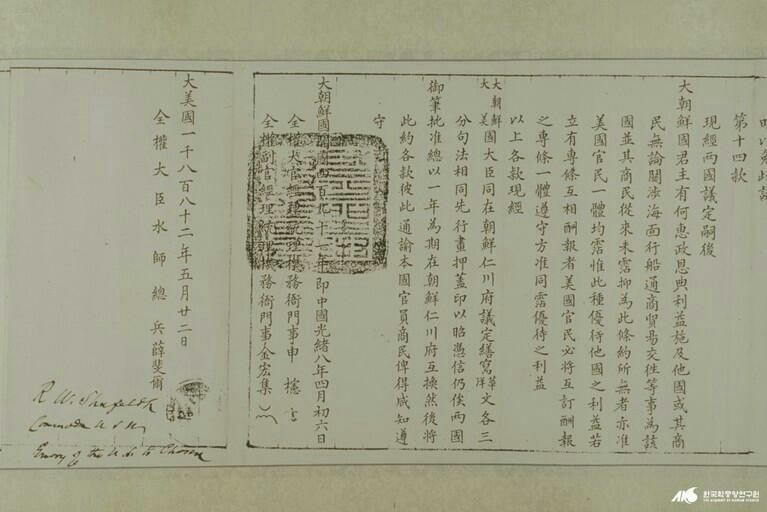 第十四款
現經兩國議定嗣後
大朝鮮國君主有何惠政恩典利益施及他國或其商
民無論關涉海面行船通商貿易交往等事為該
國並其商民從來未霑抑為此條約所無者亦准
美國官民一體均霑惟此種優待他國之利益若
立有專條互相酬報者美國官民必將互訂酬報
之專條一體遵守方准同霑優待之利益
以上各款現經
大朝鮮大美國大臣同在朝鮮仁川府議定繕寫華洋文各三
分句法相同先行畫押蓋印以昭憑信仍俟兩國
御筆批准總以一年為期在朝鮮仁川府互換然後將
此約各款彼此通諭本國官員商民俾得咸知遵
守
大朝鮮國 年即中國光緒八年四月初六日
全權大官經理統理機務衙門事申櫶
全權副官經理統理機務衙門事金宏集
大美國一千八百八十二年五月廿二日
全權大臣水師總兵薛斐爾
R. W. Shufeldt
Commodore U.S.N.
Envoy of the U.S. to Chosen
한국학중앙연구원
THE ACADEMY OF KOREAN STUDIES